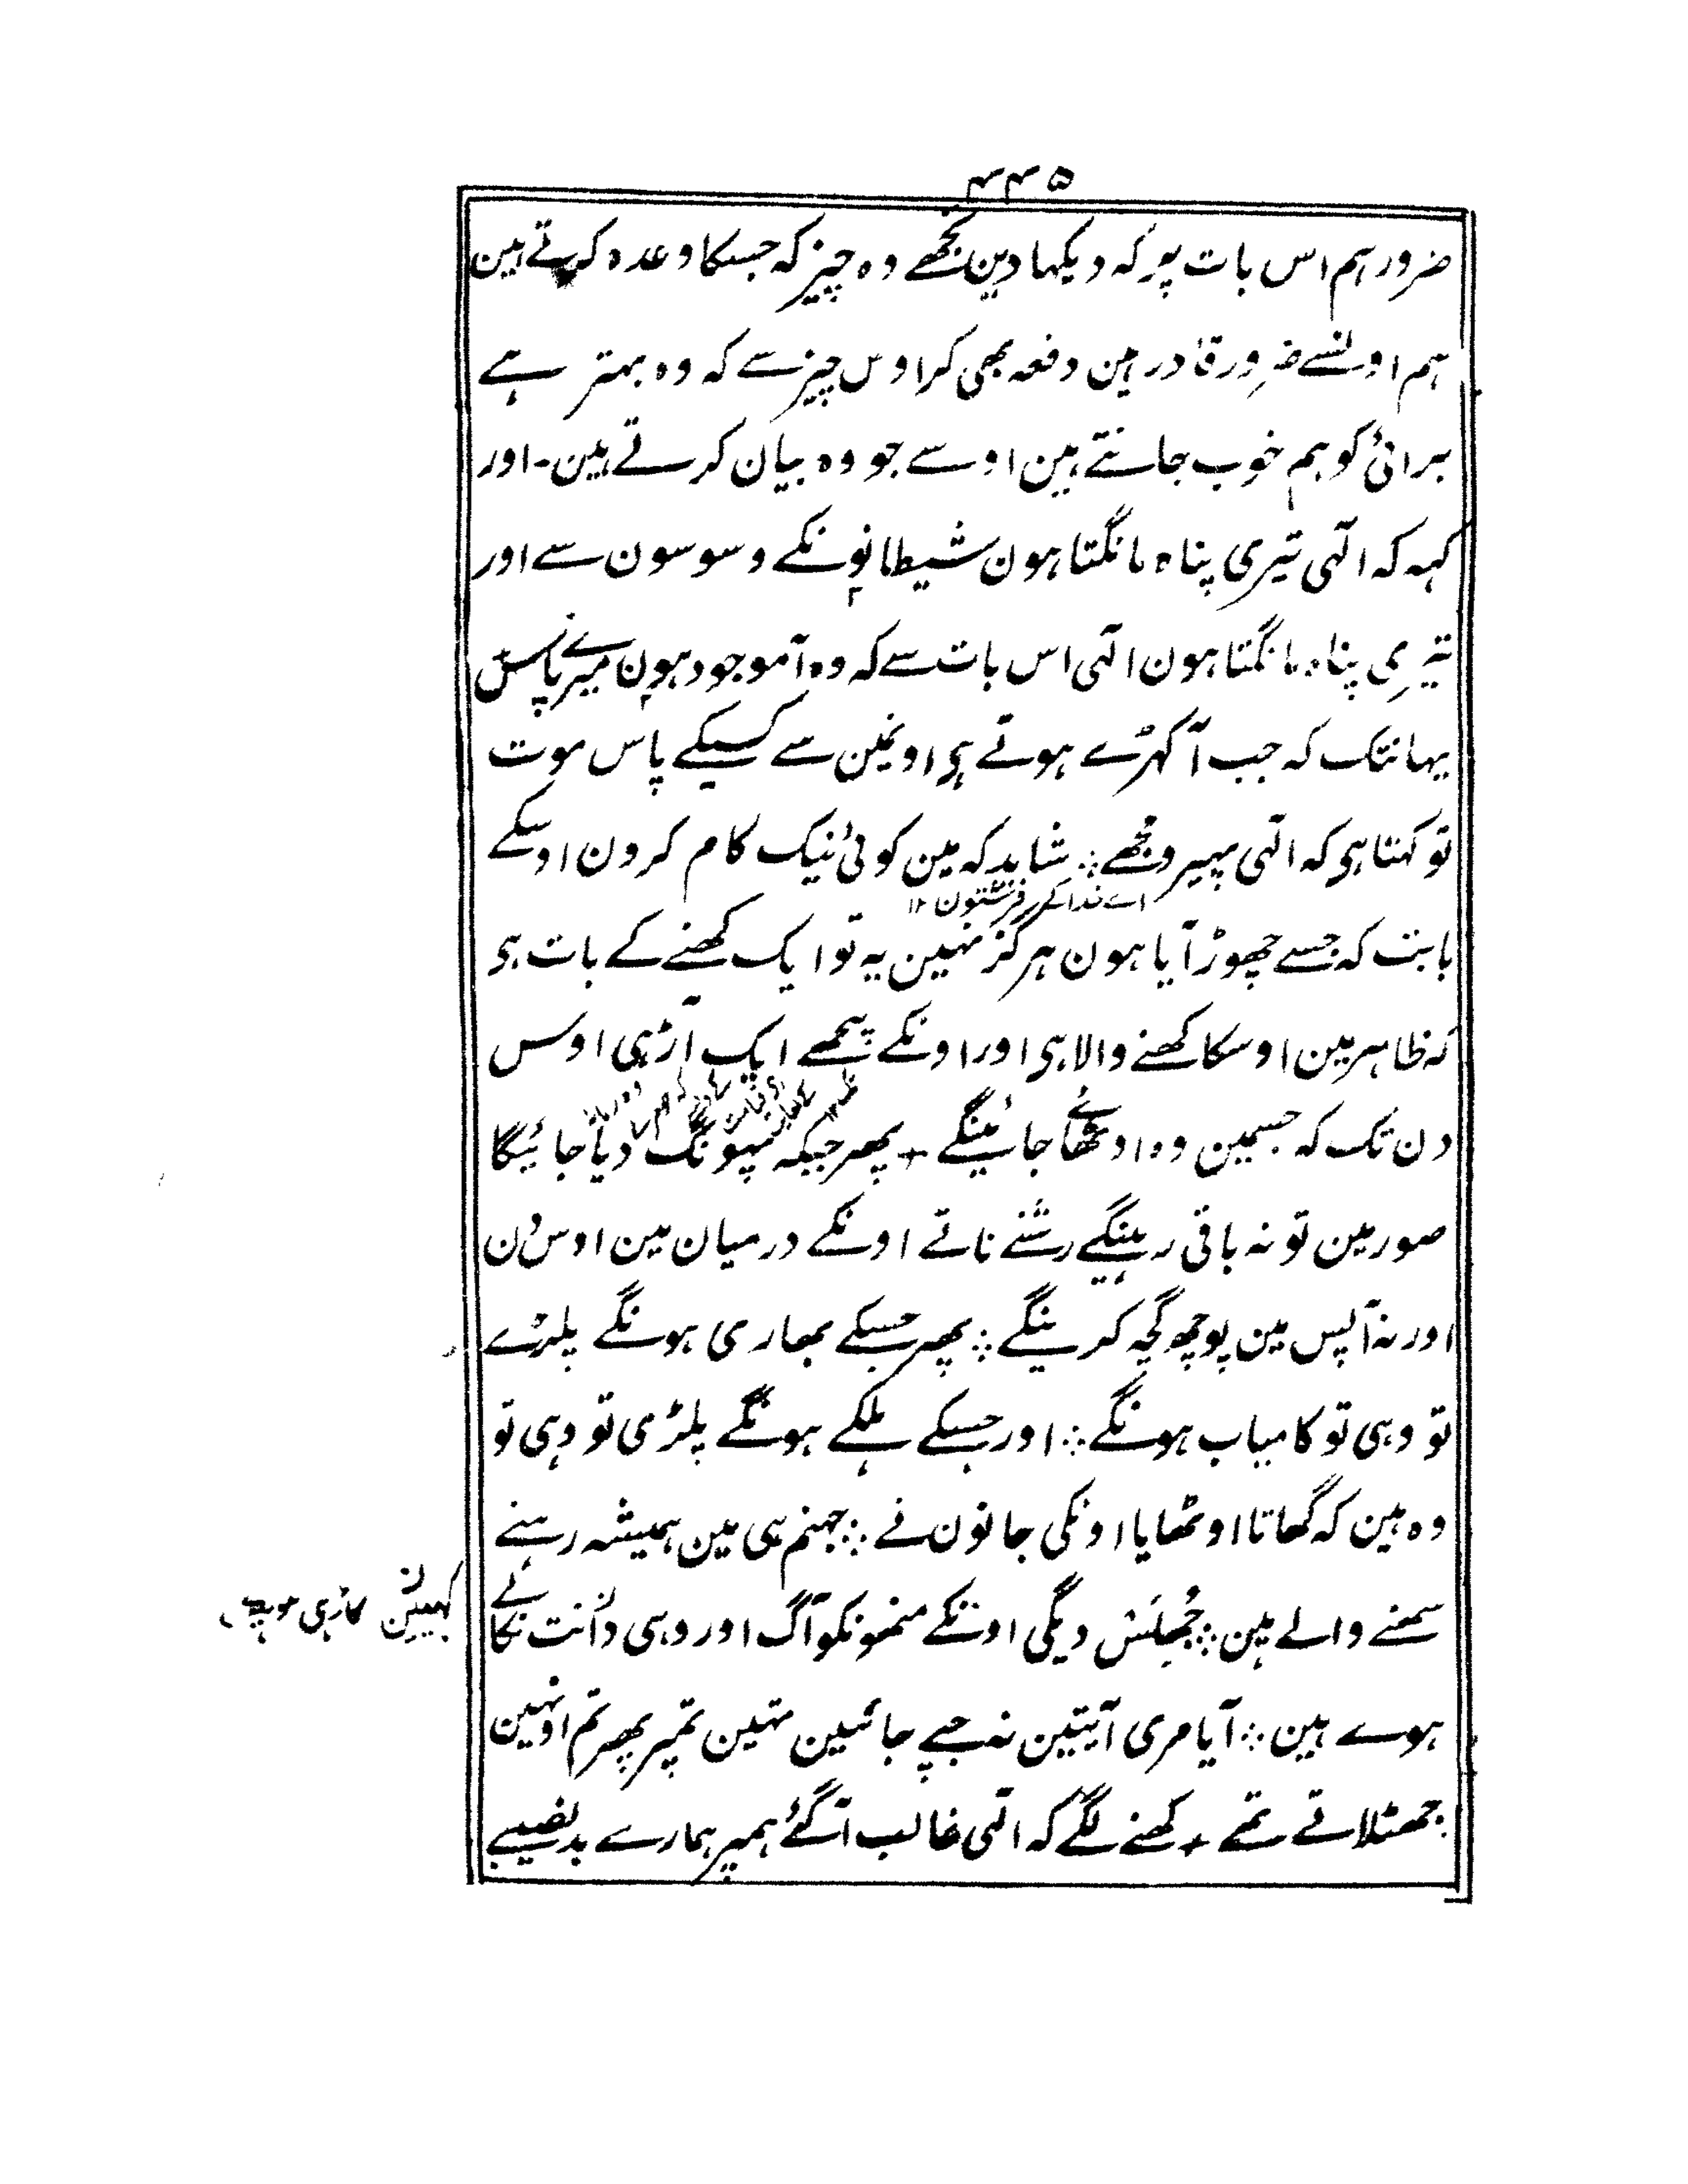 ۴۴۵
ضرور ہم اس بات پر کہ دیکہا دین تجھے وہ چیز کہ جسکا وعدہ کرتے ہین
ہم اونسے ضرور قادر ہین دفعہ بھی کر اوس چیز سے کہ وہ بہتر ہے
برائی کو ہم خوب جانتے ہین اوسے جو وہ بیان کرتے ہین۔ اور
کہہ کہ الٓہی تیری پناہ مانگتا ہون شیطانونکے وسوسون سے اور
تیری پناہ مانگتا ہون الٓہی اس بات سے کہ وہ آ موجود ہون میرے پاس
یہانتک کہ جب آ کہڑے ہوتے ہی اونمین سے کسیکے پاس موت
تو کہتا ہی کہ الٓہی پہیر دو مجھے ؞ شاید کہ مین کوئی نیک کام کرون اوسکے
اے ندا کر فرشتون ۱۲
بابت کہ جسے چھوڑ آیا ہون ہرگز نہین یہ تو ایک کھنے کے بات ہی
کہ ظاہر مین اوسکا کھنے والا ہی اور اونکے پیچھے ایک آڑ ہی اوس
دن تک کہ جسمین وہ اوٹھائے جائینگے + پھر جبکہ پہونک دیا جائیگا
صور مین تو نہ باقی رہینگے رشتے ناتے اونکے درمیان مین اوس دن
اور نہ آپس مین پوچھ گچہ کرینگے ؞ پھر جسکے بھاری ہونگے پلڑے
تو وہی تو کامیاب ہونگے ؞ اور جسکے ہلکے ہونگے پلڑی تو وہی تو
وہ ہین کہ گھاٹا اوٹھایا اونکی جانون نے ؞ جہنم ہی مین ہمیشہ رہنے
سہنے والے ہین ؞ جُھلَسْ دیگی اونکے منھونکو آگ اور وہی دانت نکالے
ہوے ہین ؞ آیا مری آیتین نہ جپے جائین تہین تمپر پھر تم اونہین
جھٹلاتے تھے + کھنے لگے کہ الٓہی غالب آگئے ہمپر ہمارے بدنصیبے